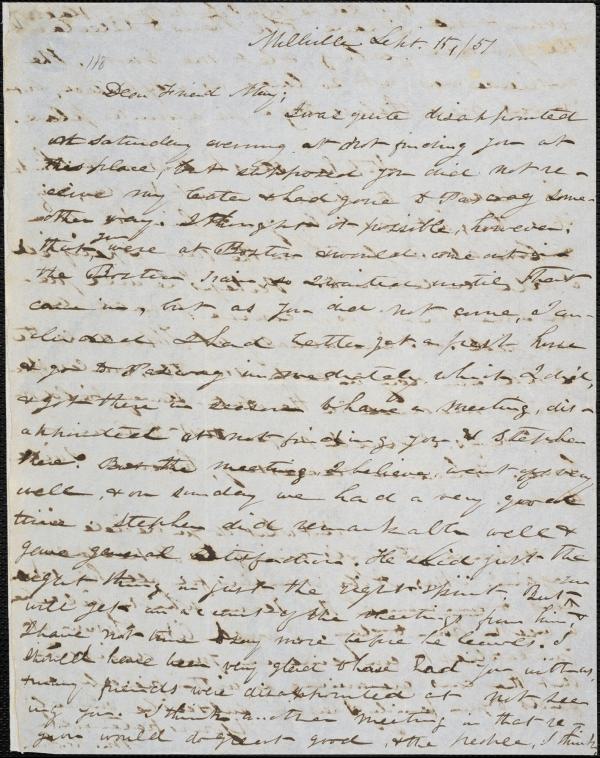 Millville Sept. 15, /51
Dear Friend May;
I was quite disappointed
on Saturday evening at not finding you at
this place, but supposed you did not re-
ceive my letter & had gone to Pascoag some
other way. I thought it possible, however,
that you were at Boston & would come out in
the Boston train, so I waited until that
came in, but as you did not come, I con-
cluded I had better get a fresh horse
& go to Pascoag immediately which I did,
& got there in season to have a meeting, dis-
appointed at not finding you & Stephen
there. But the meeting I believe, went off very
well & on Sunday we had a very good
time. Stephen did remarkably well &
gave general satisfaction. He said just the
right thing in just the right spirit. But you
will get an account of the meetings from him, &
I have not time to say more before he leaves. I
should have been very glad to have had you with us,
& many friends were disappointed at not see-
ing you. I think another meeting in that re-
gion would do great good, & the people, I think,